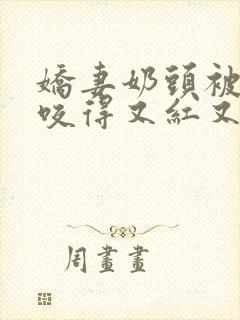 嬌妻奶頭被
咬得又紅又
周畫畫